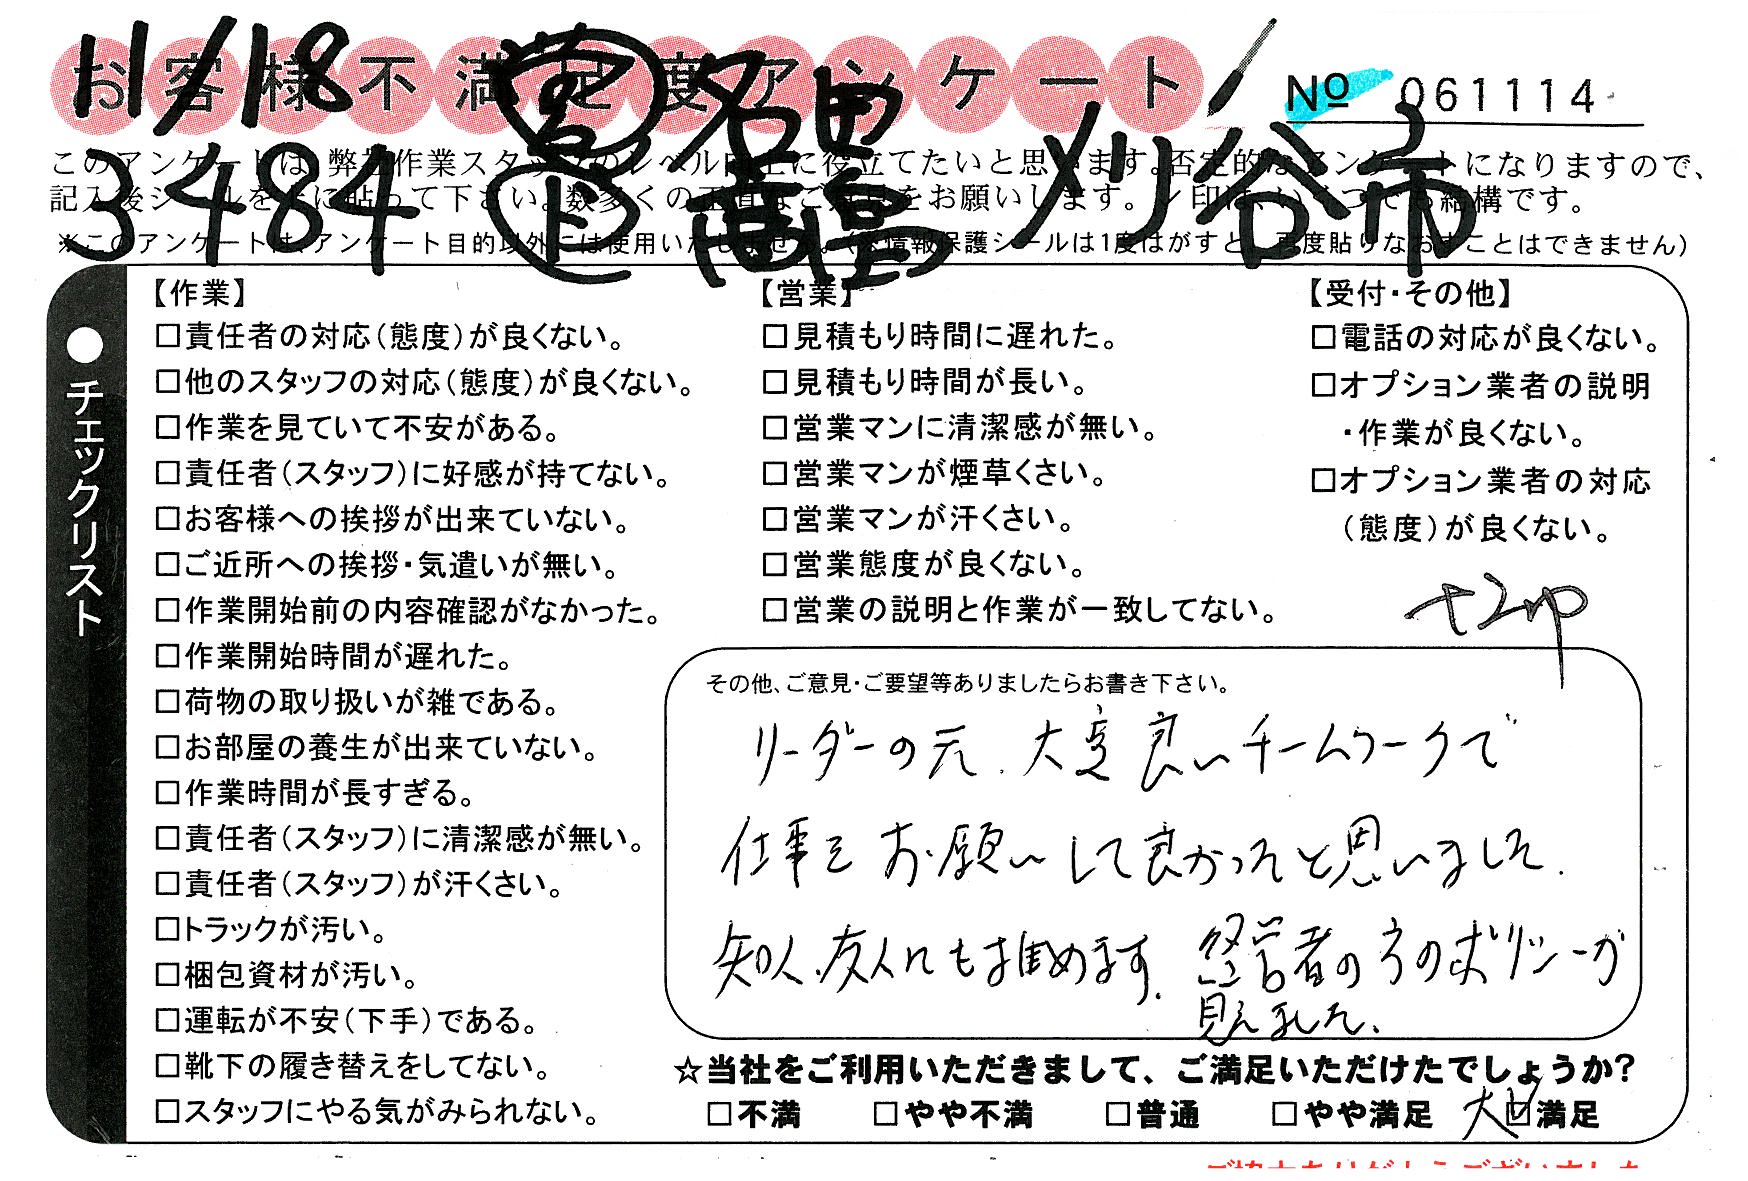 11/18
お客様不満足度アンケート
No 061114
3484
刈谷市
このアンケートは、弊社作業スタッフのレベル向上に役立てたいと思います。否定的なアンケートになりますので、
記入後シールを上に貼って下さい。数多くの正直なご意見をお願いします。レ印は、いくつでも結構です。
※このアンケートは、アンケート目的以外には使用いたしません。(※情報保護シールは1度はがすと、再度貼りなおすことはできません)
●チェックリスト
【作業】
□責任者の対応(態度)が良くない。
□他のスタッフの対応(態度)が良くない。
□作業を見ていて不安がある。
□責任者(スタッフ)に好感が持てない。
□お客様への挨拶が出来ていない。
□ご近所への挨拶・気遣いが無い。
□作業開始前の内容確認がなかった。
□作業開始時間が遅れた。
□荷物の取り扱いが雑である。
□お部屋の養生が出来ていない。
□作業時間が長すぎる。
□責任者(スタッフ)に清潔感が無い。
□責任者(スタッフ)が汗くさい。
□トラックが汚い。
□梱包資材が汚い。
□運転が不安(下手)である。
□靴下の履き替えをしてない。
□スタッフにやる気がみられない。
【営業】
□見積もり時間に遅れた。
□見積もり時間が長い。
□営業マンに清潔感が無い。
□営業マンが煙草くさい。
□営業マンが汗くさい。
□営業態度が良くない。
□営業の説明と作業が一致してない。
【受付・その他】
□電話の対応が良くない。
□オプション業者の説明
・作業が良くない。
□オプション業者の対応
(態度)が良くない。
その他、ご意見・ご要望等ありましたらお書き下さい。
リーダーの元、大変良いチームワークで
仕事をお願いして良かったと思いました。
知人、友人にも推めます。経営者の方のポリシーが
見えました。
☆当社をご利用いただきまして、ご満足いただけたでしょうか?
□不満 □やや不満 □普通 □やや満足 大☑満足
ご協力ありがとうございました